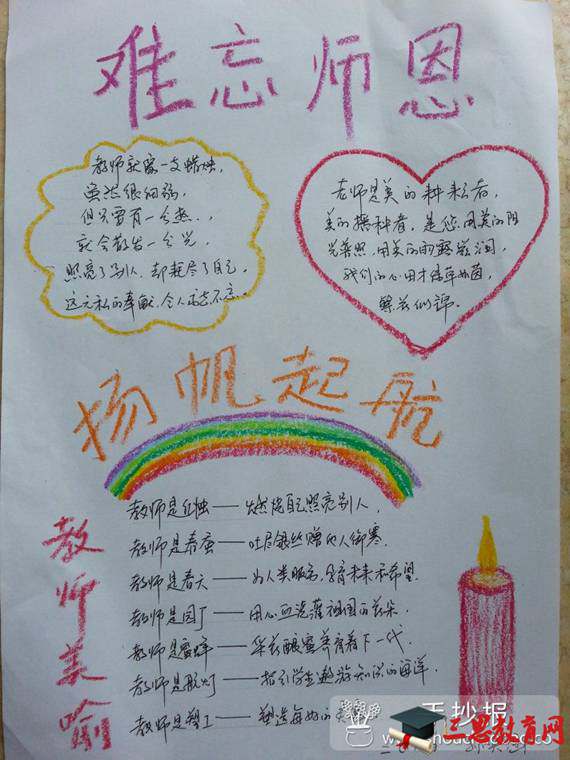 难忘师恩
教师就像一支蜡烛,
虽然很细弱,
但只要有一分热..,
就会散发一分光,
照亮了别人,却耗尽了自己,
这无私的奉献,令人永志不忘.
老师是美的耕耘者,
美的播种者,是您用美的阳
光普照,用美的雨露滋润,
我们的心田才绿草如茵,
繁花似锦.
扬帆起航
教师美喻
教师是红烛——燃烧自己照亮别人,
教师是春蚕——吐尽银丝赠他人御寒.
教师是春天——为人类服务,孕育未来和希望.
教师是园丁——用心血浇灌祖国的花朵
教师是蜜蜂——采花酿蜜养育着下一代.
教师是航灯——指引学生遨游知识的海洋.
教师是塑工——塑造每
手抄报
三思教育网